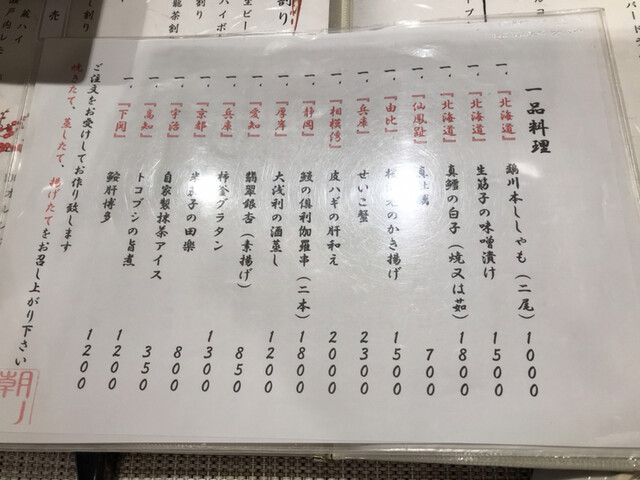 一品料理
一、『北海道』 鵡川本ししゃも(二尾) 1000
一、『北海道』 生筋子の味噌漬け 1500
一、『北海道』 真鱈の白子(焼又は茹) 1800
一、『仙鳳趾』 真牡蠣 700
一、『由比』 桜海老のかき揚げ 1500
一、『兵庫』 せいこ蟹 2300
一、『相模湾』 皮ハギの肝和え 2000
一、『静岡』 鰻の倶利伽羅串(二本) 1800
一、『厚岸』 大浅利の酒蒸し 1200
一、『愛知』 翡翠銀杏(素揚げ) 850
一、『兵庫』 柿釜グラタン 1300
一、『京都』 米茄子の田楽 800
一、『宇治』 自家製抹茶アイス 350
一、『高知』 トコブシの旨煮 1200
一、『下関』 鮟肝博多 1200
ご注文をお受けしてお作り致します
焼きたて、蒸したて、揚げたてをお召し上がり下さい